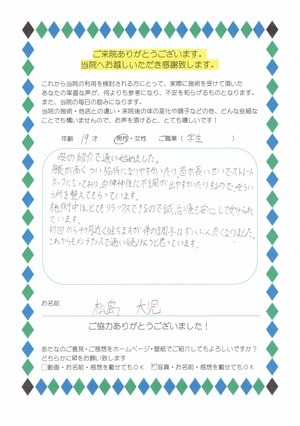 ご来院ありがとうございます。
当院へお越しいただき感謝致します。
これから当院の利用を検討される方にとって、実際に施術を受けて頂いた
あなたの率直な声が、何よりも参考になり、不安を和らげるものとなります。
また、当院の毎日の励みになります。
当院の施術・他店との違い・来院後の体の変化や調子などの他、どんな些細な
ことでも構いませんので、お声を頂けると、とても嬉しいです!
年齢 19才 男性・女性 ご職業(学生)
母の紹介で通い始めました。
腰が悪く 猫背になりやすかったり、首が長いせいでストレート
ネックになっており、自律神経に不調が出やすかったりするので、そういう
所を整えてもらっています。
施術中はとてもリラックスできるので鍼治療も安心してやられ
ています。
初回から 近く経ちますが体の調子はずいぶん良くなりました。
これからもメンテナンスで通い続けようと思っています。
お名前 松島 大児
ご協力ありがとうございました!
あなたのご意見・ご感想をホームページ・壁紙でご紹介してもよろしいですか?
どちらかに☑をお願い致します
□動画・お名前・感想を載せてもOK ☑写真・お名前・感想を載せてもOK